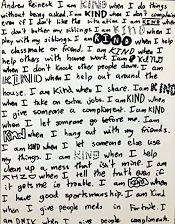 Andrew Reineck I am KIND when I do things
without being asked. I am KIND when I don't complain
even if I don't like the situation. I am KIND when
I don't bother my siblings. I am KIND when I
play with my siblings. I am KIND when I help
a classmate or friend. I am KIND when I
help others with home work. I am KIND
when I don't knock other people down. I am
KIND when I help out around the
house. I am KIND when I share. I am KIND
when I take extra jobs. I am KIND when I
give someone a compliment. I am KIND
when I let someone go before me. I am
Kind when I hang out with my friends.
I am KIND when I let someone else use
my things. I am KIND when I help
clean up a mess that isn't mine. I am
KIND when I tell the truth even if
it gets me in trouble. I am KIND when
I have good sportsmanship. I am KIND
when I give people meds in Fortnite. I
am KIND when I give people compliments.